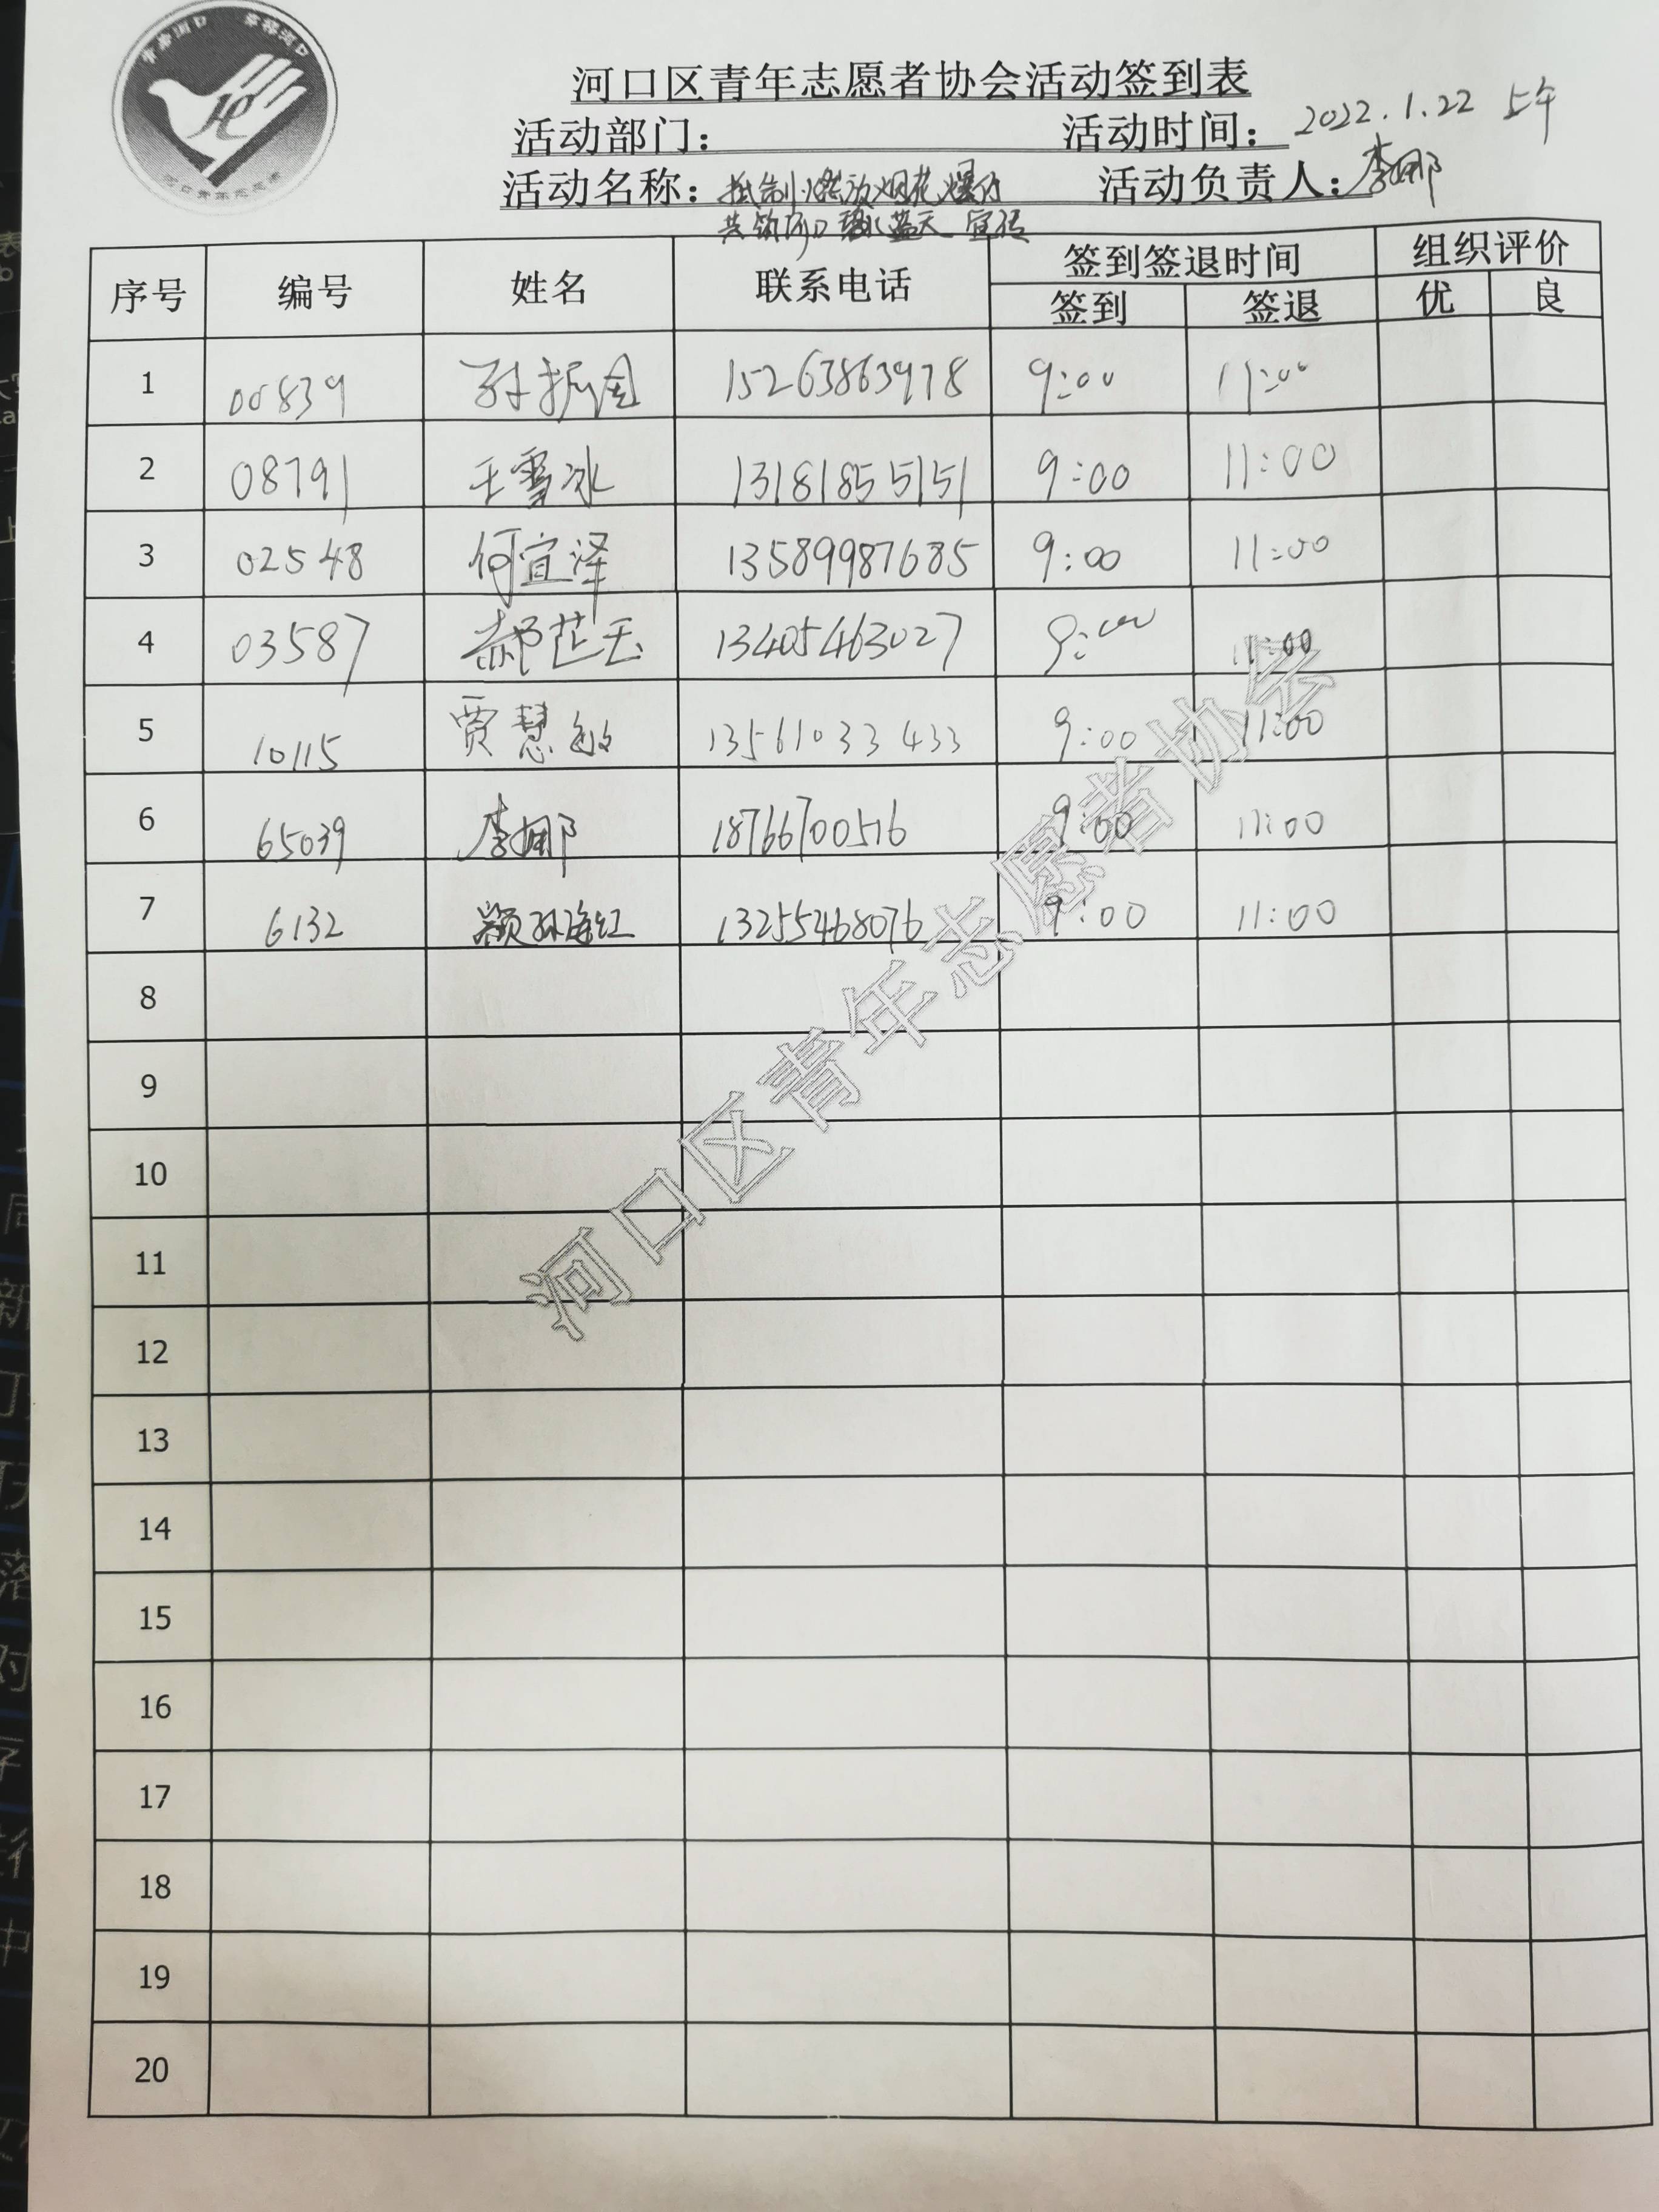 河口区青年志愿者协会活动签到表
活动部门： 活动时间：2022.1.22 上午
活动名称：抵制燃放烟花爆竹 活动负责人：李娜
共筑河口碧水蓝天 宣传
序号 编号 姓名 联系电话 签到签退时间 组织评价
签到 签退 优 良
1 00839 孙振国 15263863978 9:00 11:00
2 08791 王雪冰 13181855151 9:00 11:00
3 02548 何宜泽 13589987685 9:00 11:00
4 03587 郝芷玉 13405463027 9:00 11:00
5 10115 贾慧敏 13561033433 9:00 11:00
6 65039 李娜 18766700516 9:00 11:00
7 6132 颛孙海红 13255468076 9:00 11:00
8
9
10
11
12
13
14
15
16
17
18
19
20
河口区青年志愿者协会